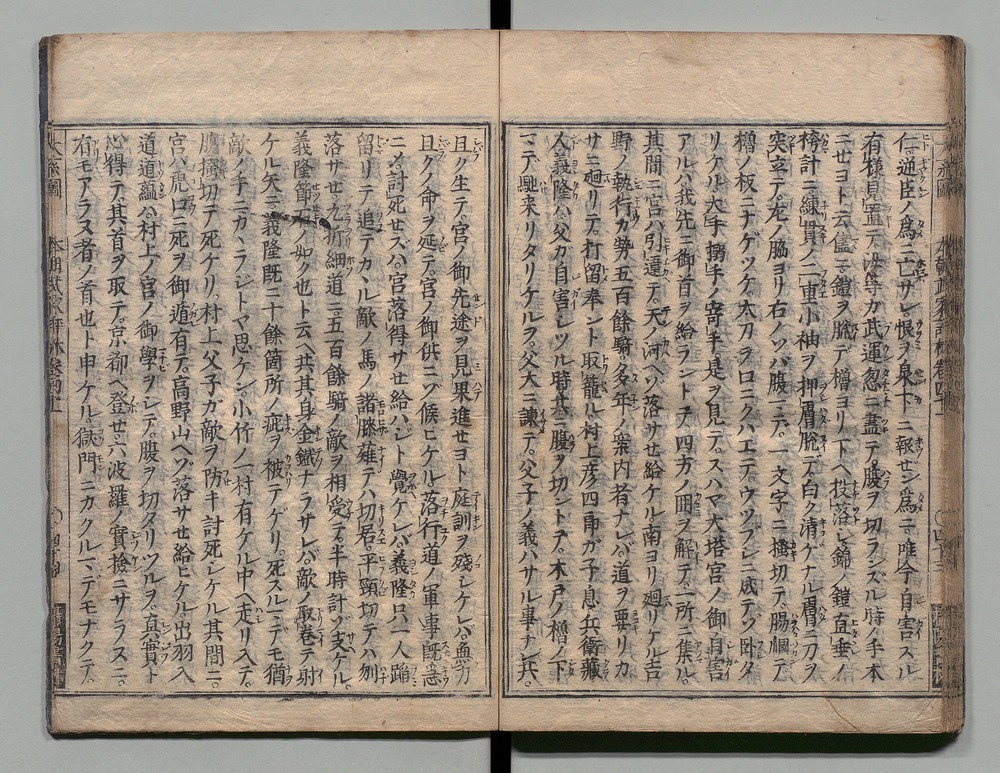 仁ノ逆臣ノ爲ニ亡サレ恨ヲ泉下ニ報ゼン爲ニ唯今自害スル
有樣見置テ汝等カ武運忽ニ盡テ腹ヲ切ランズル時ノ手本
ニセヨト云儘ニ鎧ヲ脱デ櫓ヨリ下ヘ投落シ錦ノ鎧直垂ノ
袴計ニ練貫ノ二重小袖ヲ押膚脱テ白ク清ケナル膚ニ刀ヲ
突立テ左ノ脇ヨリ右ノソバ腹ニテ一文字ニ搔切テ腸掴テ
櫓ノ板ニナゲツケ太刀ヲ口ニクハエテウツブシニ成テゾ臥タ
リケル大手搦手ノ寄手是ヲ見テスハマ大塔宮ノ御自害
アルハ我先ニ御首ヲ給ラントテ四方ノ囲ヲ解テ一所ニ集ル
其間ニ宮ハ引違テ天ノ河ヘゾ落サセ給ケル南ヨリ廻リケル吉
野ノ執行カ勢五百餘騎多年ノ案内者ナレバ道ヲ要リカ
サニ廻リテ打留奉ント取籠ル村上彦四郎ガ子息兵衛藏
人義隆ハ父ガ自害シツル時共ニ腹ヲ切ントテ木戸ノ櫓ノ下
マデ馳来リタリケルヲ父大ニ諫テ父子ノ義ハサル事ナレ共
且ク生テ宮ノ御先途ヲ見果進セヨト庭訓ヲ殘シケレバ無力
且クノ命ヲ延テ宮ノ御供ニゾ候ヒケル落行道ノ軍事既ニ急
ニメ討死セズハ宮落得サセ給ハジト覺ケレバ義隆只一人蹈
留リテ追テカヽル敵ノ馬ノ諸膝薙テハ切居平頸切テハ刎
落サセ折細道ニ五百餘騎ノ敵ヲ相受テ半時計ゾ支ケル
義隆節ノ如ク也ト云ヘ共其身金鐵ナラザレバ敵ノ取巻テ射
ケル矢ニ義隆既ニ十餘箇所ノ疵ヲ被テゲリ死スルマデモ猶
敵ノ手ニカヽラジトヤ思ケン小竹ノ一村有ケル中ヘ走リ入テ
腹搔切テ死ケリ村上父子ガ敵ヲ防キ討死シケル其間ニ
宮ハ虎口ニ死ヲ御遁有テ高野山ヘゾ落サセ給ヒケル出羽入
道道蘊ハ村上ノ宮ノ御學ヲシテ腹ヲ切タリツルヲ真實ト
心得テ其首ヲ取テ京都ヘ登セ六波羅ノ實檢ニサラスニ
有モアラヌ者ノ首也ト申ケル獄門ニカクルマデモナクテ